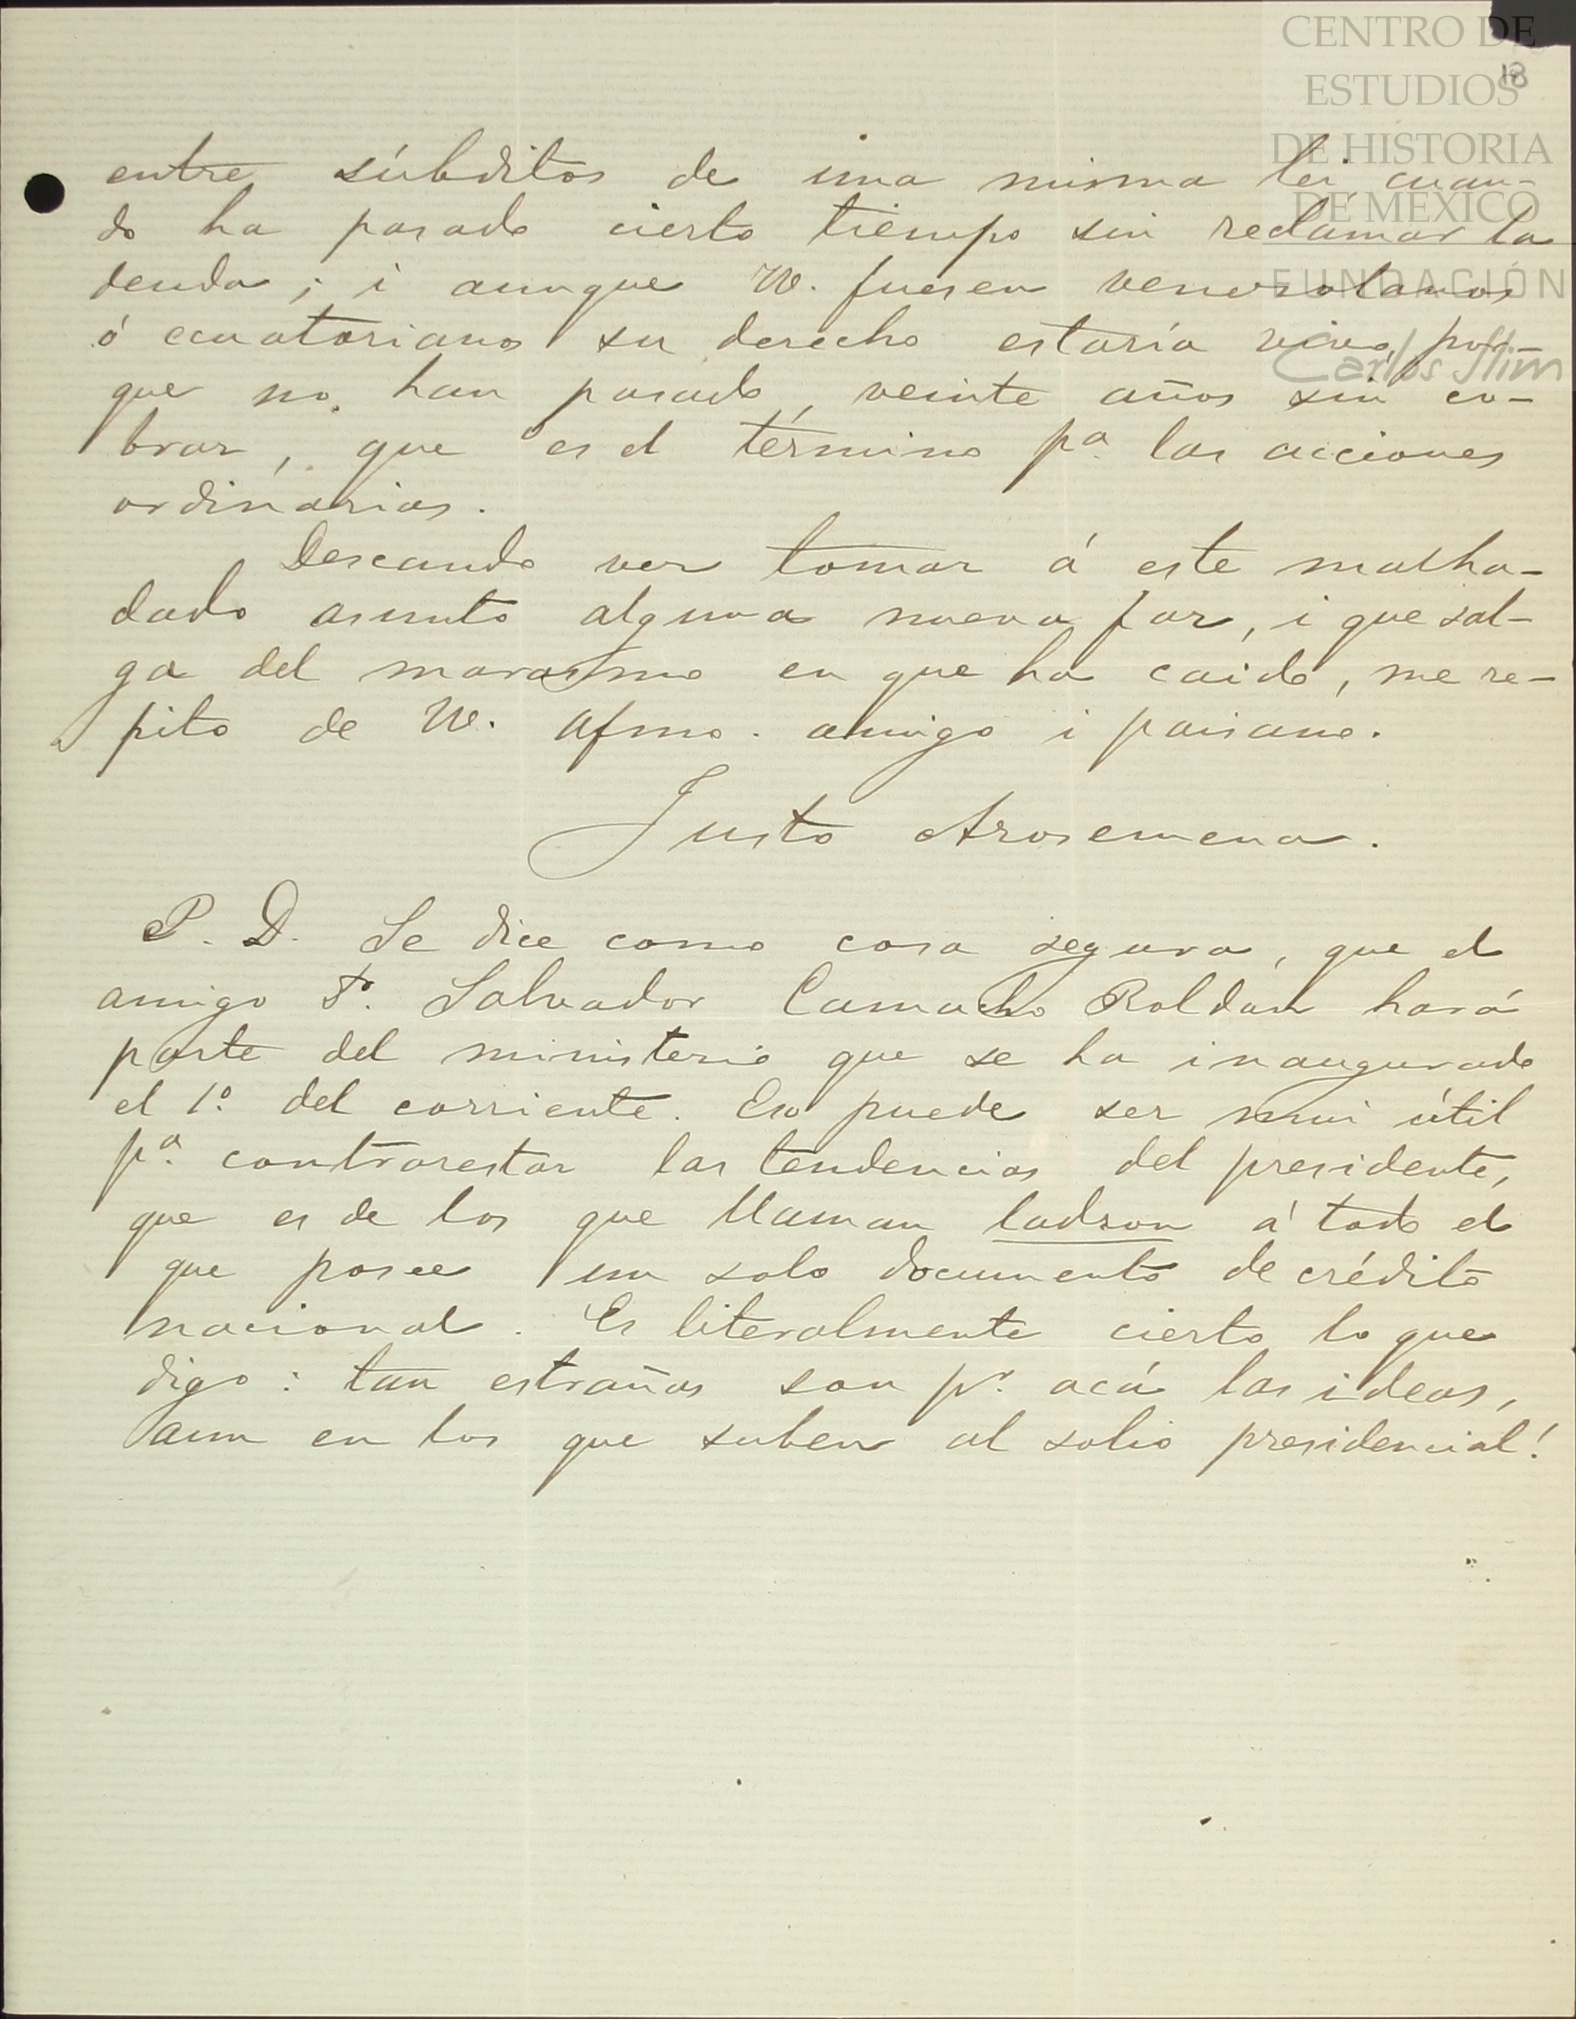 CENTRO DE
ESTUDIOS
DE HISTORIA
DE MÉXICO
FUNDACIÓN
Carlos Slim
18
entre súbditos de una misma lei, cuan-
do ha pasado cierto tiempo sin reclamar la
deuda; i aunque VV. fuesen venezolanos
ó ecuatorianos su derecho estaría vivo, por-
que no han pasado, veinte años sin co-
brar, que es el término pª. las acciones
ordinarias.
Deseando ver tomar á este malha-
dado asunto alguna nueva faz, i que sal-
ga del marasmo en que ha caido, me re-
pito de VV. afmo. amigo i paisano.
Justo Arosemena.
P. D. Se dice como cosa segura, que el
amigo Dr. Salvador Camacho Roldan hará
parte del ministerio que se ha inaugurado
el 1º. del corriente. Eso puede ser mui útil
pª. contrarestar las tendencias del presidente,
que es de los que llaman ladron á todo el
que posee un solo documento de crédito
nacional. Es literalmente cierto lo que
digo: tan estrañas son pr. acá las ideas,
aun en los que suben al solio presidencial!